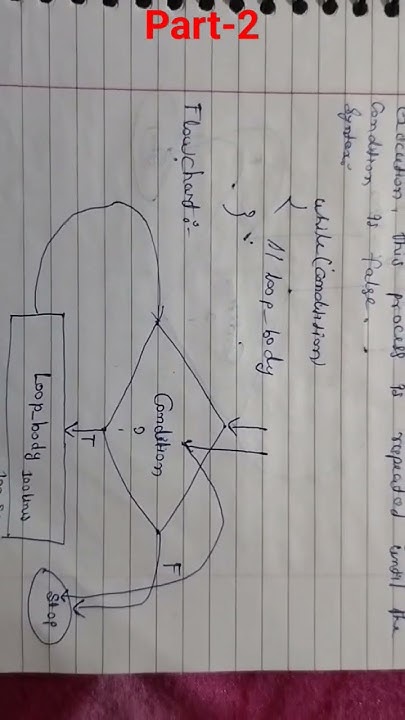 Part-2
Execution, this process is repeated until the
Condition is false.
Syntax:
while(condition)
{
// loop_body
};
Flowchart :-
Condition
?
T
F
Loop_body
Stop